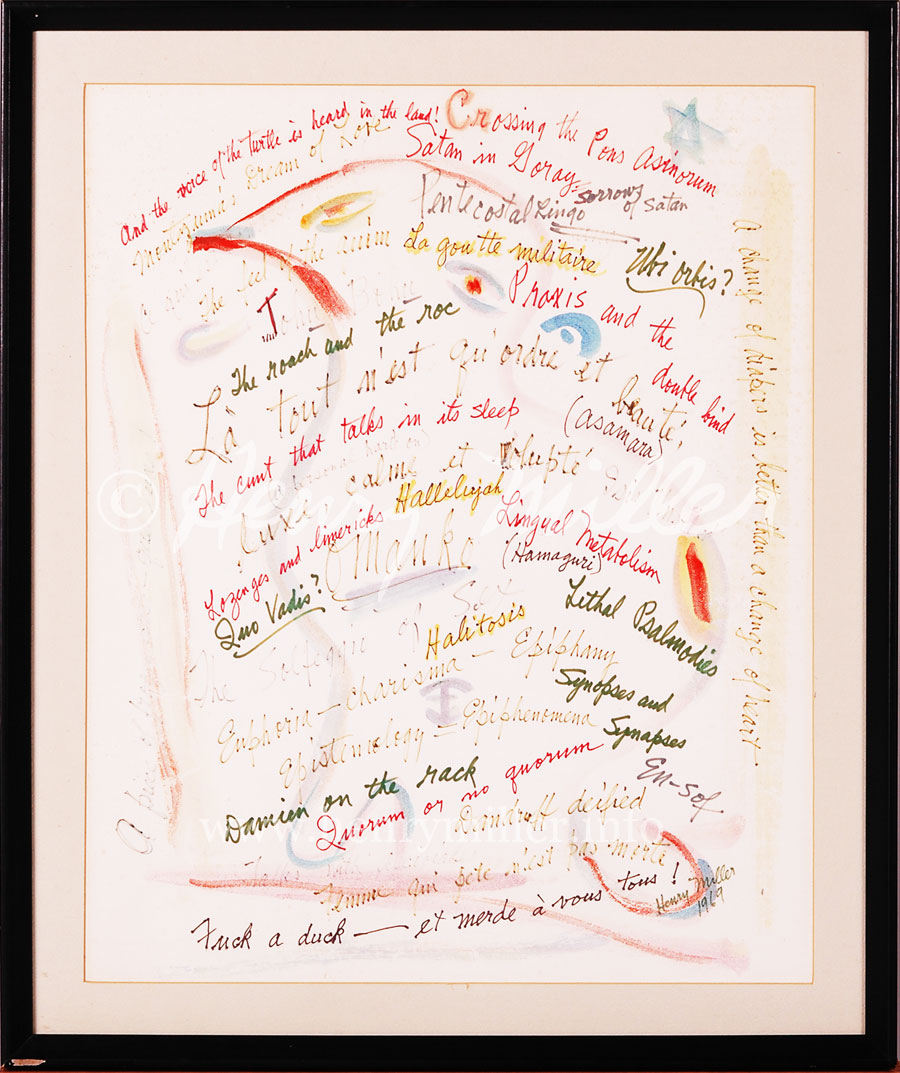 And the voice of the turtle is heard in the land!
Crossing the Pons Asinorum
Montezuma's Dream of Love
Satan in Goray
Sorrows of Satan
Pentecostal Lingo
The feel of the quim
La goutte militaire
Ubi orbis?
Praxis and the double bind
The roach and the roc
Là tout n'est qu'ordre et beauté,
(asamara)
The cunt that talks in its sleep
Luxe calme et volupté
Hallelujah
Lozenges and limericks
Lingual Metabolism
(Hamaguri)
Manko
Quo Vadis?
Lithal Psalmodies
The Solfeggio of Sex
Halitosis
Euphoria — charisma — Epiphany
Synopses and Synapses
Epistemology — Epiphenomena
En-Sof
Damien on the rack
Quorum or no quorum
Dandruff deified
Femme qui pète n'est pas morte
Fuck a duck — et merde à vous tous!
Henry Miller
1969
A change of diapers is better than a change of heart
© Henry Miller
www.henrymiller.info